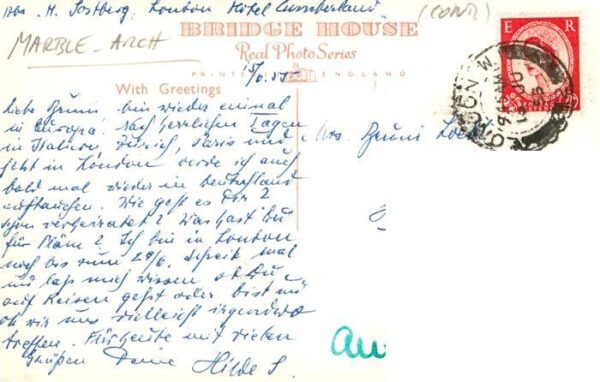 H. Sostberg, London Hotel Cumberland
(CONT)
MARBLE-ARCH
BRIDGE HOUSE
Real Photo Series
PRINTED ENGLAND
With Greetings
E R
LONDON W
Liebe Zenni bin wieder einmal
in Europa! Nach herrlichen Tagen
in Italien, Zürich, Paris und
jetzt in London werde ich auch
bald mal wieder in Deutschland
auftauchen. Wie geht es Dir?
schon verheiratet? Was hast Du
für Pläne? Ich bin in London
noch bis zum 29/6. Schreib mal
und lass mich wissen ob Du
auf Reisen gehst oder bist und
ob wir uns vielleicht irgendwo
treffen. Für heute mit vielen
Grüßen Deine Hilde S.
Mrs. Zenni